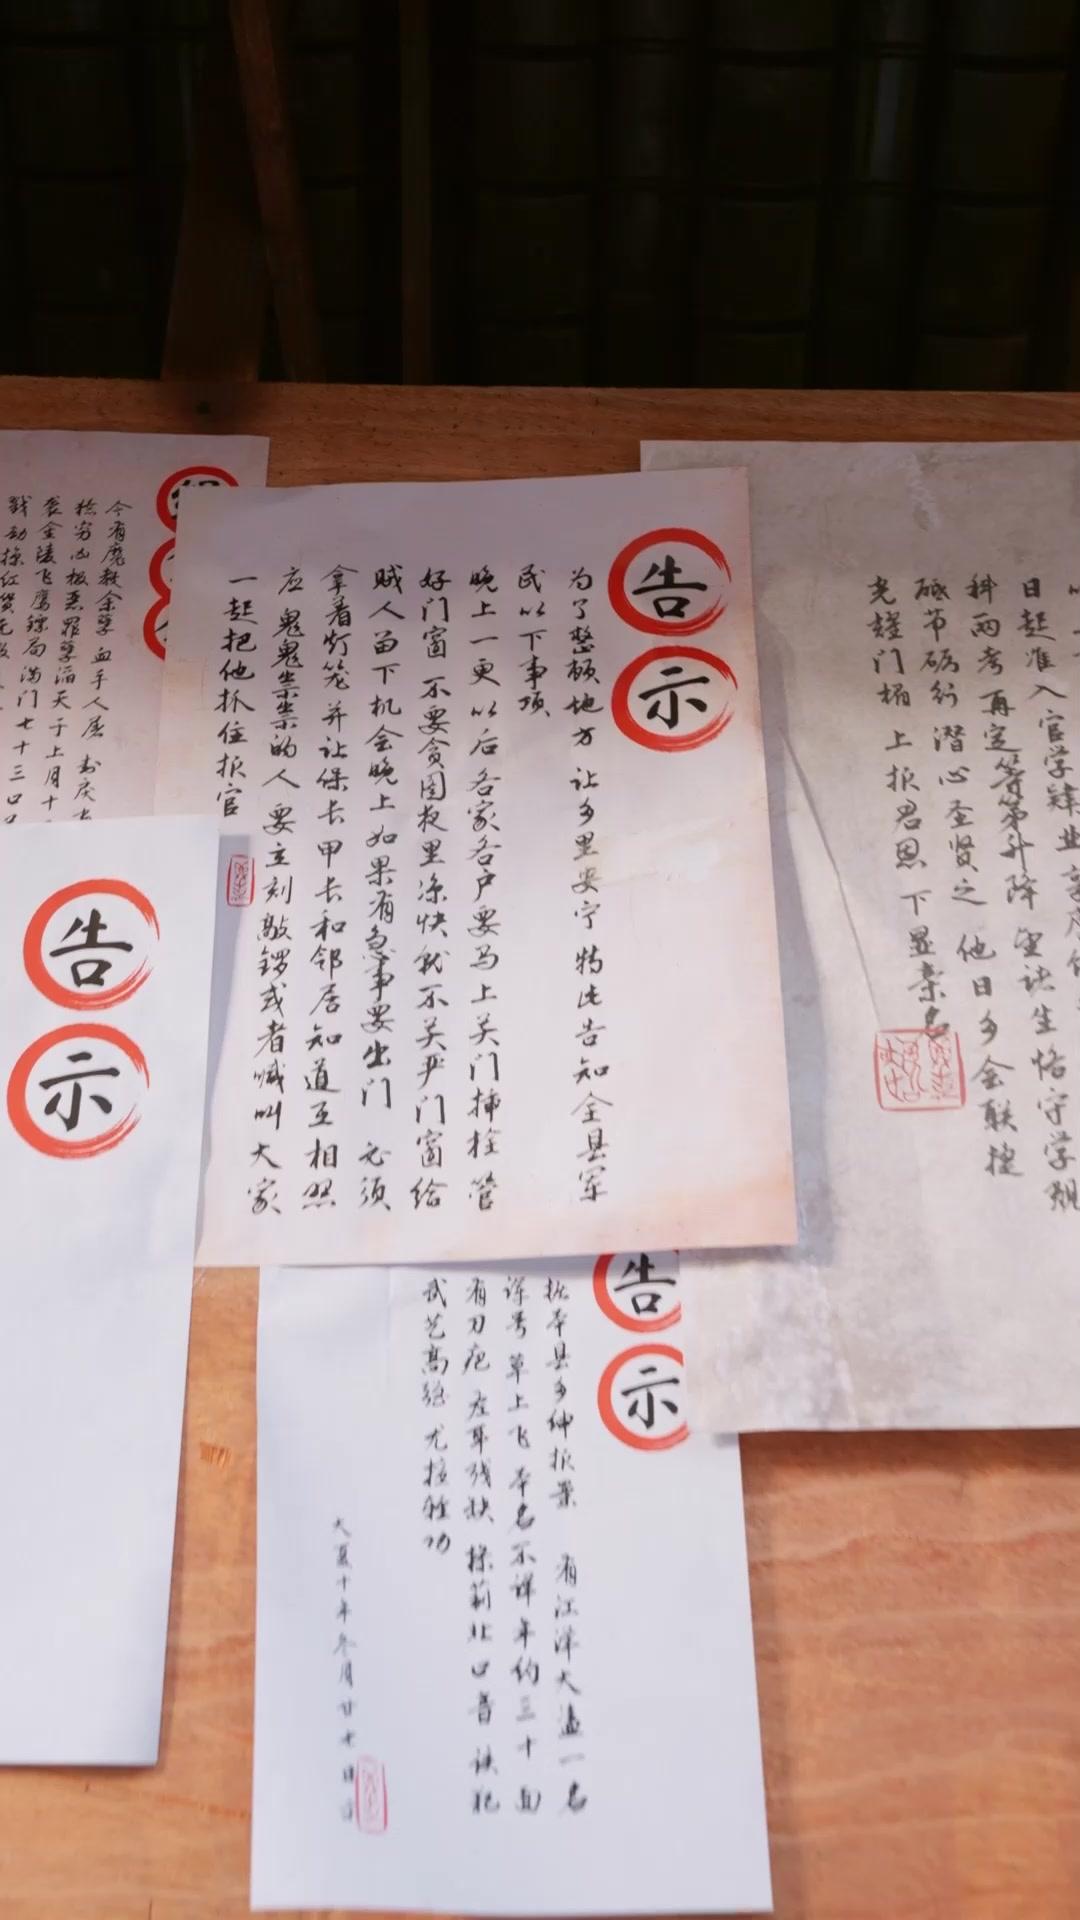 告示
为了整顿地方 让乡里安宁 特此告知全县军
民以下事项
晚上一更以后各家各户要马上关门插栓 管
好门窗 不要贪图夜里凉快就不关严门窗给
贼人留下机会晚上如果有急事要出门 必须
拿着灯笼 并让保长甲长和邻居知道互相照
应 鬼鬼祟祟的人 要立刻敲锣或者喊叫大家
一起把他抓住报官
日起准入官学肄业
科两考 再定等第升降 望诸生恪守学规
砥节砺行 潜心圣贤之 他日乡会联捷
光耀门楣 上报君恩 下显亲名
今有魔教余孽 血手人屠
穷凶极恶罪孽滔天于上月十
袭金陵飞鹰镖局满门七十三口
告示
告示
据本县乡绅报案 有江洋大盗一名
诨号 草上飞 本名不详年约三十 面
有刀疤 左耳残缺 操荊北口音 该犯
武艺高强 尤擅轻功
大夏十年冬月廿七日